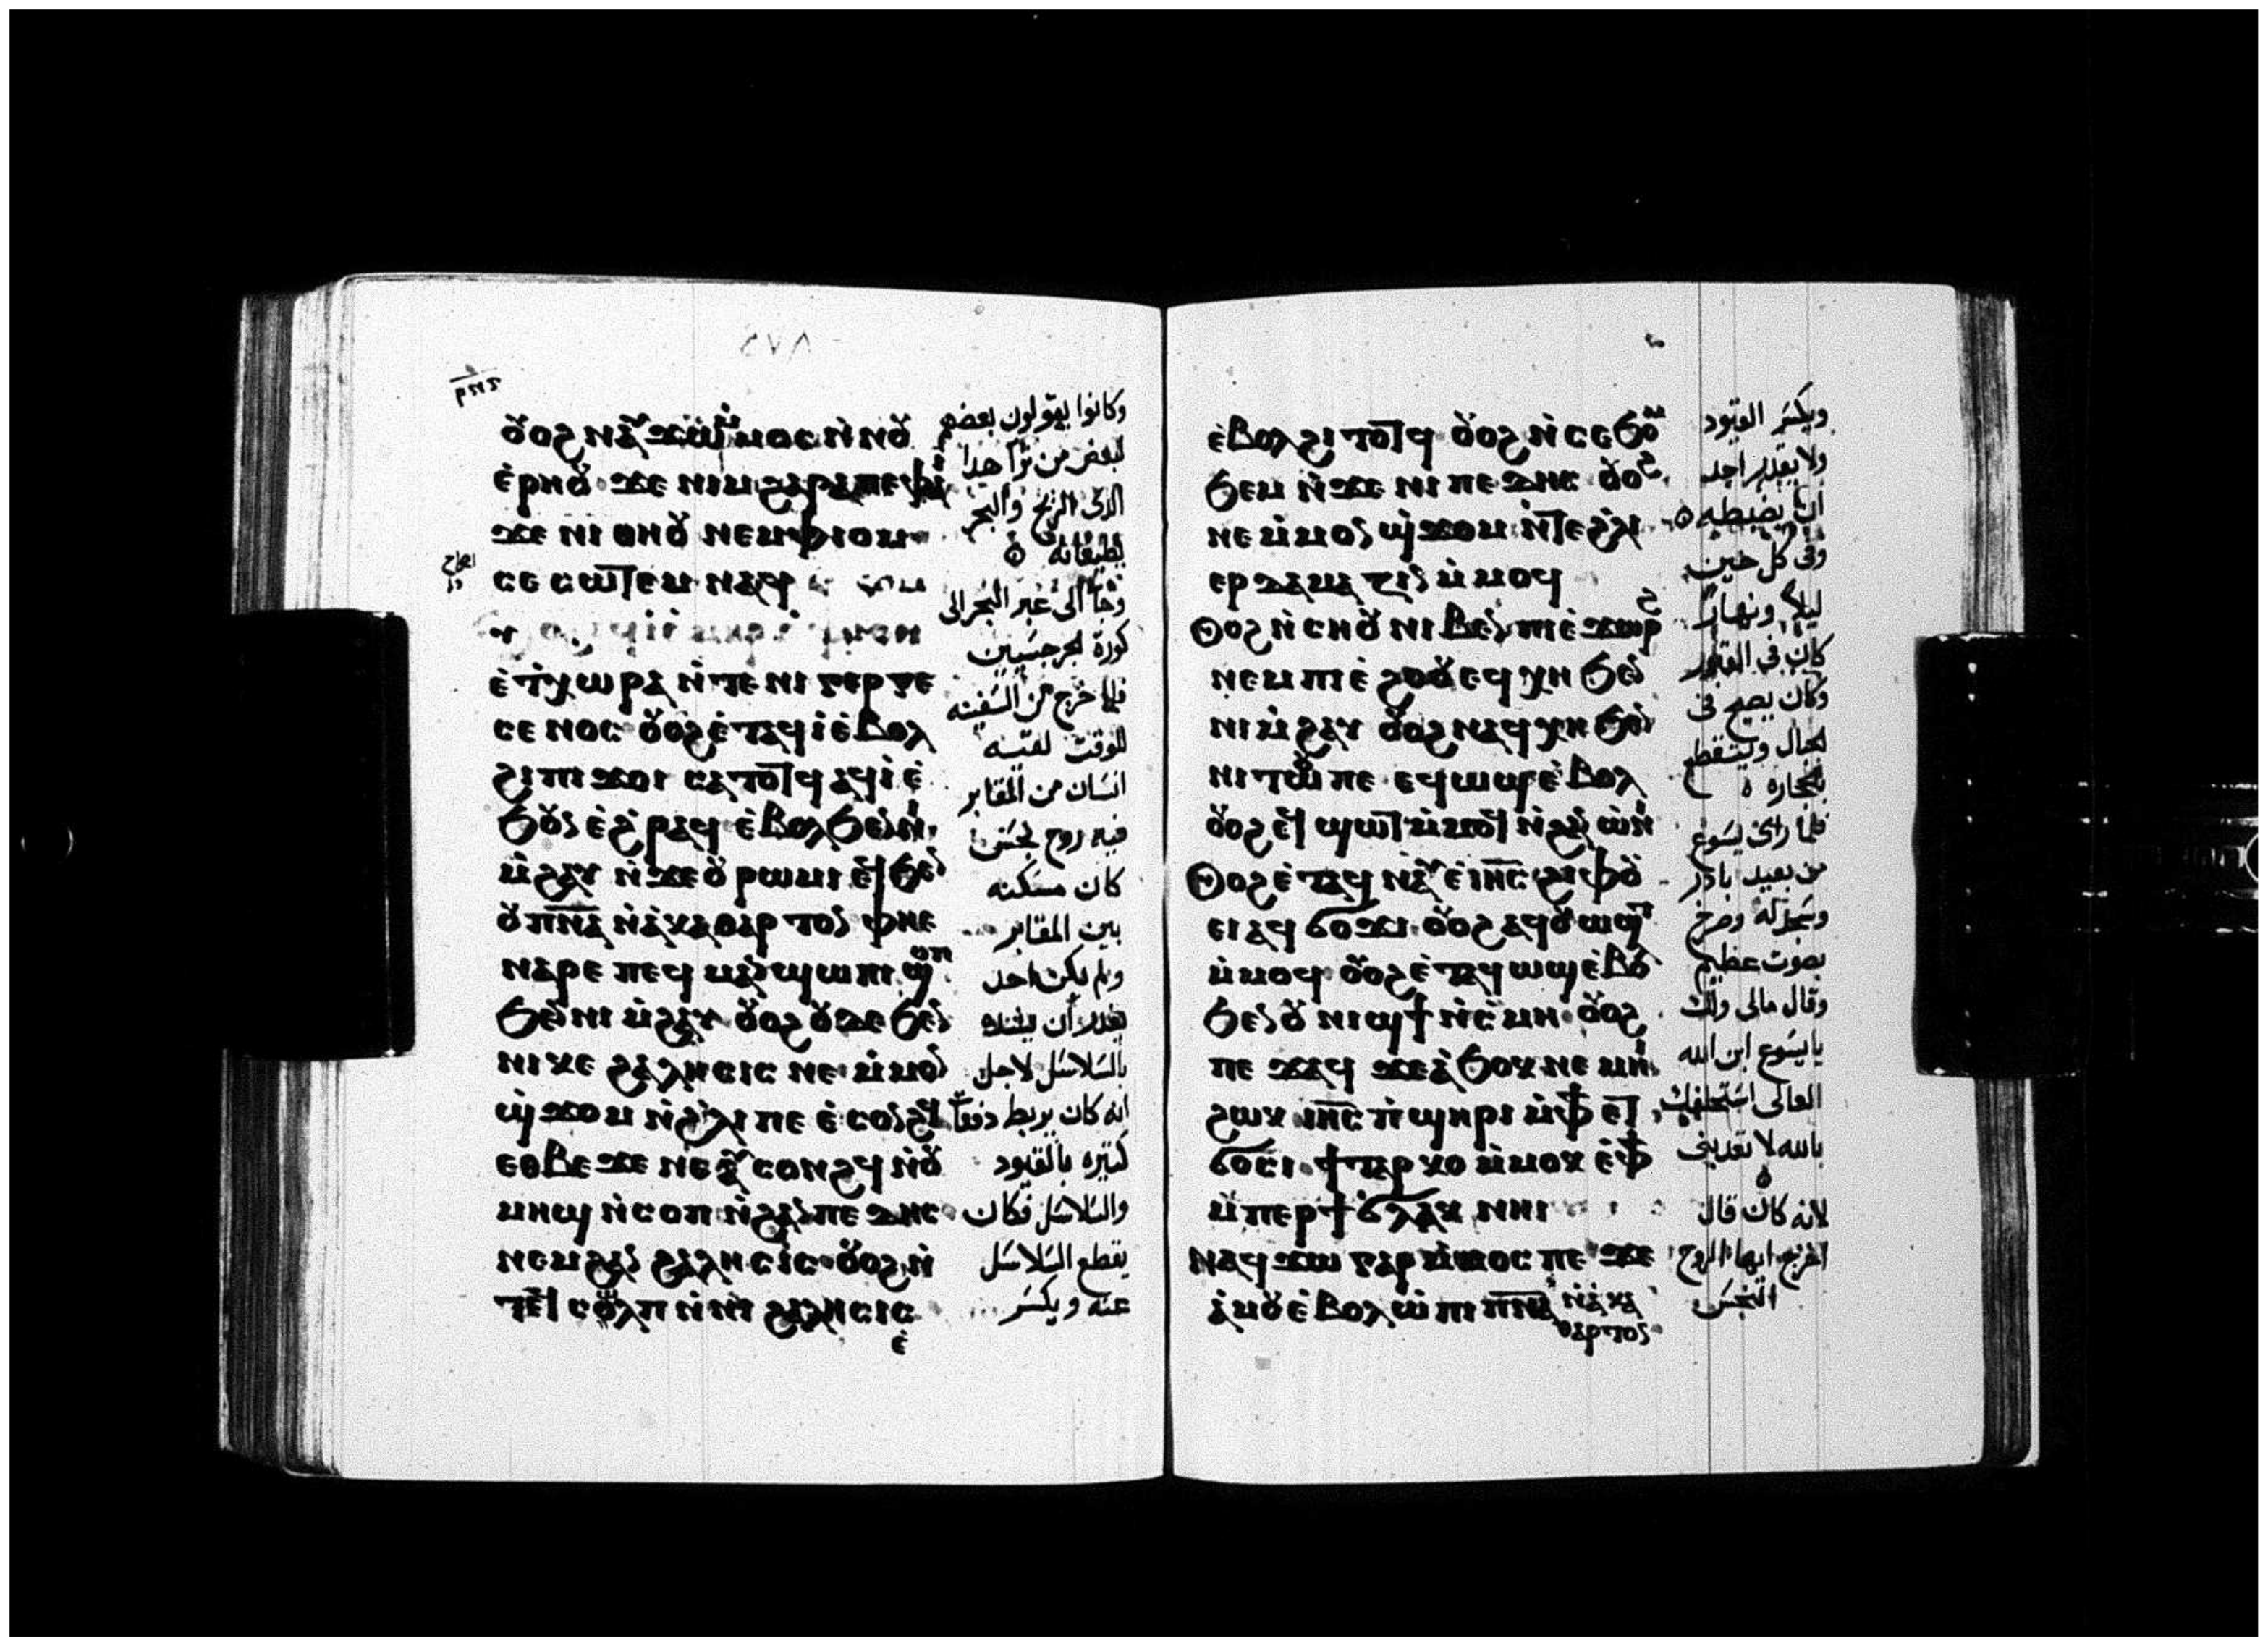 ٤٧٨
ⲉ̀ⲣⲏⲟⲩ ϫⲉ ⲛⲓⲙ ϩⲁⲣⲁ ⲡⲉ ⲫⲁⲓ
ϫⲉ ⲛⲓ ⲑⲏⲟⲩ ⲛⲉⲙ ⲫⲓⲟⲙ
ⲥⲉ ⲥⲱⲧⲉⲙ ⲛⲁϥ
ⲉ̀ϯⲭⲱⲣⲁ ⲛ̀ⲧⲉ ⲛⲓ ⲅⲉⲣⲅⲉ
ⲥⲉ ⲛⲟⲥ ⲟⲩⲟϩ ⲉ̀ⲧⲁϥⲓ̀ ⲉ̀ⲃⲟⲗ
ϩⲓ ⲡⲓϫⲟⲓ ⲥⲁⲧⲟⲧϥ ⲁϥⲓ̀ ⲉ̀
ϧⲟⲩⲛ ⲉ̀ϩ̀ⲣⲁϥ ⲉ̀ⲃⲟⲗϧⲉⲛ ⲛⲓ
ⲙ̀ϩⲁⲩ ⲛ̀ϫⲉ ⲟⲩⲣⲱⲙⲓ ⲉⲧϧⲉⲛ
ⲟⲩⲡ̅ⲛ̅ⲁ̅ ⲛ̀ⲁ̀ⲕⲁⲑⲁⲣⲧⲟⲛ ⲫⲏⲉ
ⲛⲁⲣⲉ ⲡⲉϥ ⲙⲁⲛϣⲱⲡⲓ ϣⲟⲡ
ϧⲉⲛ ⲛⲓ ⲙ̀ϩⲁⲩ ⲟⲩⲟϩ ⲟⲩⲇⲉ ϧⲉⲛ
ⲛⲓⲕⲉ ϩⲁⲗⲏⲥⲓⲥ ⲛⲉ ⲙ̀ⲙⲟⲛ
ϣ̀ϫⲟⲙ ⲛ̀ϩ̀ⲗⲓ ⲡⲉ ⲉ̀ⲥⲟⲛϩϥ
ⲉⲑⲃⲉ ϫⲉ ⲛⲉⲁⲩ ⲥⲟⲛϩϥ ⲛ̀ⲟⲩ
ⲙⲏϣ ⲛ̀ⲥⲟⲡ ⲛ̀ϩⲁⲛ ⲡⲉⲇⲏⲥ
ⲛⲉⲙ ϩⲁⲛ ϩⲁⲗⲏⲥⲓⲥ ⲟⲩⲟϩ ⲛ̀
ⲧⲉϥ ⲥⲟⲗⲡ ⲛ̀ⲛⲓ ϩⲁⲗⲏⲥⲓⲥ
ⲉ̀
وكانوا يقولون بعضهم
لبعض من ترا هذا
الذى الريح والبحر
يطيعانه
وجا الى عبر البحر الى
كورة الجرجسيين
فلما خرج من السفينه
للوقت لقيه
انسان من المقابر
فيه روح نجس
كان مسكنه
بين المقابر
ولم يكن احد
يقدر ان يشده
بالسلاسل لاجل
انه كان يربط دفعا
كثيره بالقيود
والسلاسل فكان
يقطع السلاسل
عنه ويكسر
ⲉ̀ⲃⲟⲗ ϩⲓ ⲧⲟⲧϥ ⲟⲩⲟϩ ⲛ̀ⲥⲉϧⲟⲙ
ϧⲉⲙ ⲛ̀ϫⲉ ⲛⲓ ⲡⲉⲇⲏⲥ ⲟⲩⲟϩ
ⲛⲉ ⲙ̀ⲙⲟⲛ ϣ̀ϫⲟⲙ ⲛ̀ⲧⲉ ϩ̀ⲗⲓ
ⲉⲣⲇⲁⲙⲁⲍⲓⲛ ⲙ̀ⲙⲟϥ
ⲟⲩⲟϩ ⲛ̀ⲥⲏⲟⲩ ⲛⲓⲃⲉⲛ ⲡⲓⲉ̀ϫⲱⲣϩ
ⲛⲉⲙ ⲡⲓⲉ̀ϩⲟⲟⲩ ⲉϥⲭⲏ ϧⲉⲛ
ⲛⲓ ⲙ̀ϩⲁⲩ ⲟⲩⲟϩ ⲛⲁϥⲭⲏ ϧⲉⲛ
ⲛⲓ ⲧⲱⲟⲩ ⲡⲉ ⲉϥⲱϣ ⲉ̀ⲃⲟⲗ
ⲟⲩⲟϩ ⲉϥϣⲱⲧ ⲙ̀ⲙⲟϥ ⲛ̀ϩⲁⲛ ⲱⲛⲓ
ⲟⲩⲟϩ ⲉ̀ⲧⲁϥ ⲛⲁⲩ ⲉ̀ⲓⲏ̅ⲥ̅ ϩⲓ ⲫⲟⲩ
ⲉⲓ ⲁϥ ϭⲟϫⲓ ⲟⲩⲟϩ ⲁϥⲟⲩⲱϣⲧ
ⲙ̀ⲙⲟϥ ⲟⲩⲟϩ ⲉ̀ⲧⲁϥⲱϣ ⲉ̀ⲃⲟⲗ
ϧⲉⲛ ⲟⲩ ⲛⲓϣϯ ⲛ̀ⲥ̀ⲙⲏ ⲟⲩⲟϩ
ⲡⲉ ϫⲁϥ ϫⲉ ⲁ̀ϧⲟⲕ ⲛⲉⲙⲏⲓ
ϩⲱⲕ ⲓⲏ̅ⲥ̅ ⲡ̀ϣⲏⲣⲓ ⲙ̀ⲫϯ ⲉⲧ
ϭⲟⲥⲓ ϯⲧⲁⲣⲕⲟ ⲙ̀ⲙⲟⲕ ⲉ̀ⲫϯ
ⲙ̀ⲡⲉⲣϯϩⲉⲙⲕⲟ ⲛⲏⲓ
ⲛⲁϥϫⲱ ⲅⲁⲣ ⲙ̀ⲙⲟⲥ ⲡⲉ ϫⲉ
ⲁ̀ⲙⲟⲩ ⲉ̀ⲃⲟⲗ ⲱ̀ ⲡⲓ ⲡ̅ⲛ̅ⲁ̅ ⲛ̀ⲁ̀ⲕⲁ
ⲑⲁⲣⲧⲟⲛ
ويكسر القيود
ولا يقدر احد
ان يضبطه
وفى كل حين
ليلا ونهارا
كان فى القبور
وكان يصيح فى
بالحجاره
فلما راى يسوع
من بعيد بادر
وسجد له وصرخ
بصوت عظيم
وقال مالى ولك
يا يسوع ابن الله
العالى استحلفك
بالله لا تعذبنى
لانه كان قال
اخرج ايها الروح
النجس